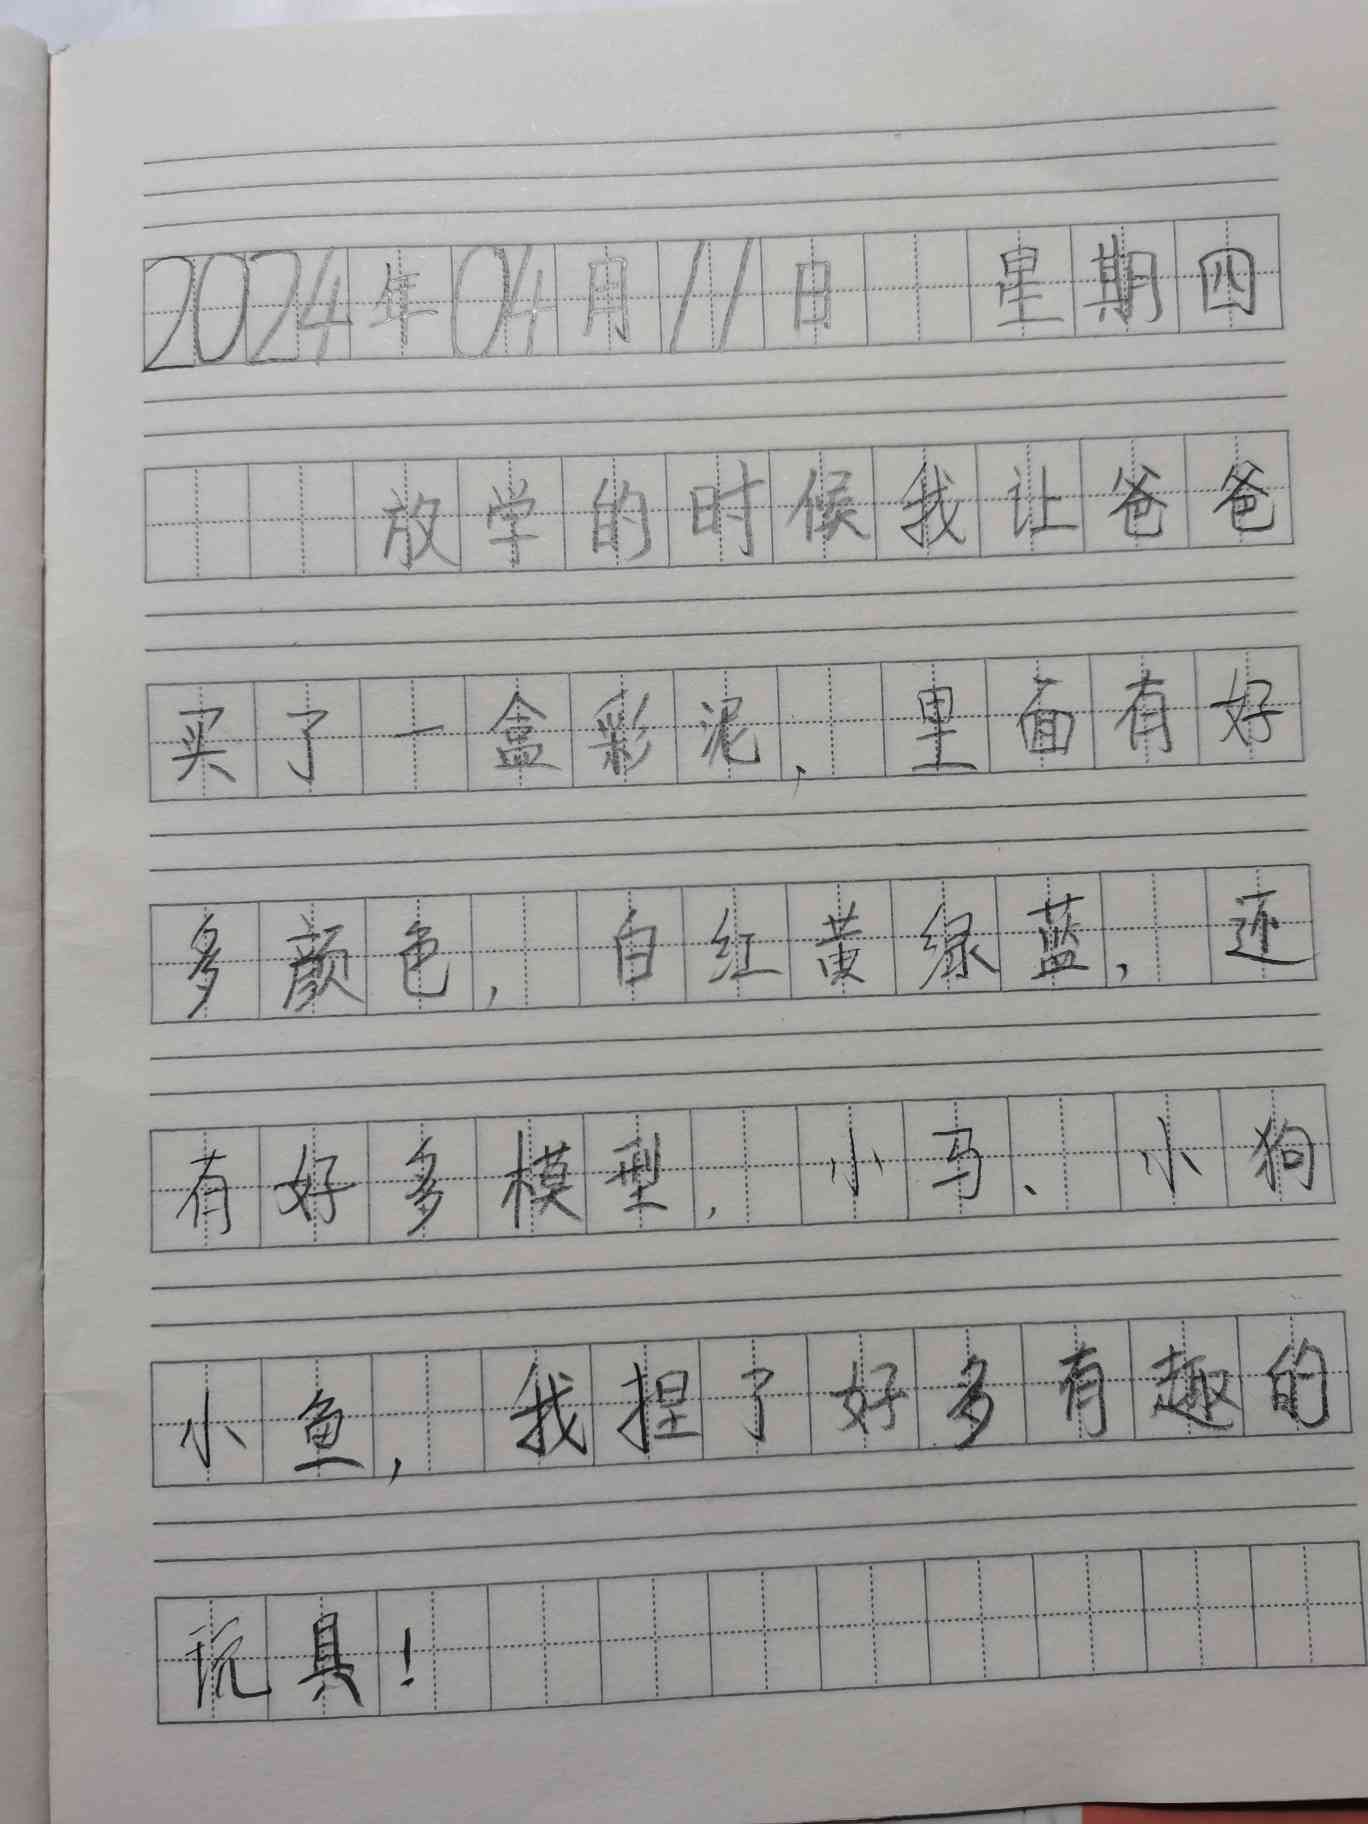 2024年04月11日 星期四
放学的时候我让爸爸
买了一盒彩泥，里面有好
多颜色，白红黄绿蓝，还
有好多模型，小马、小狗
小鱼，我捏了好多有趣的
玩具！